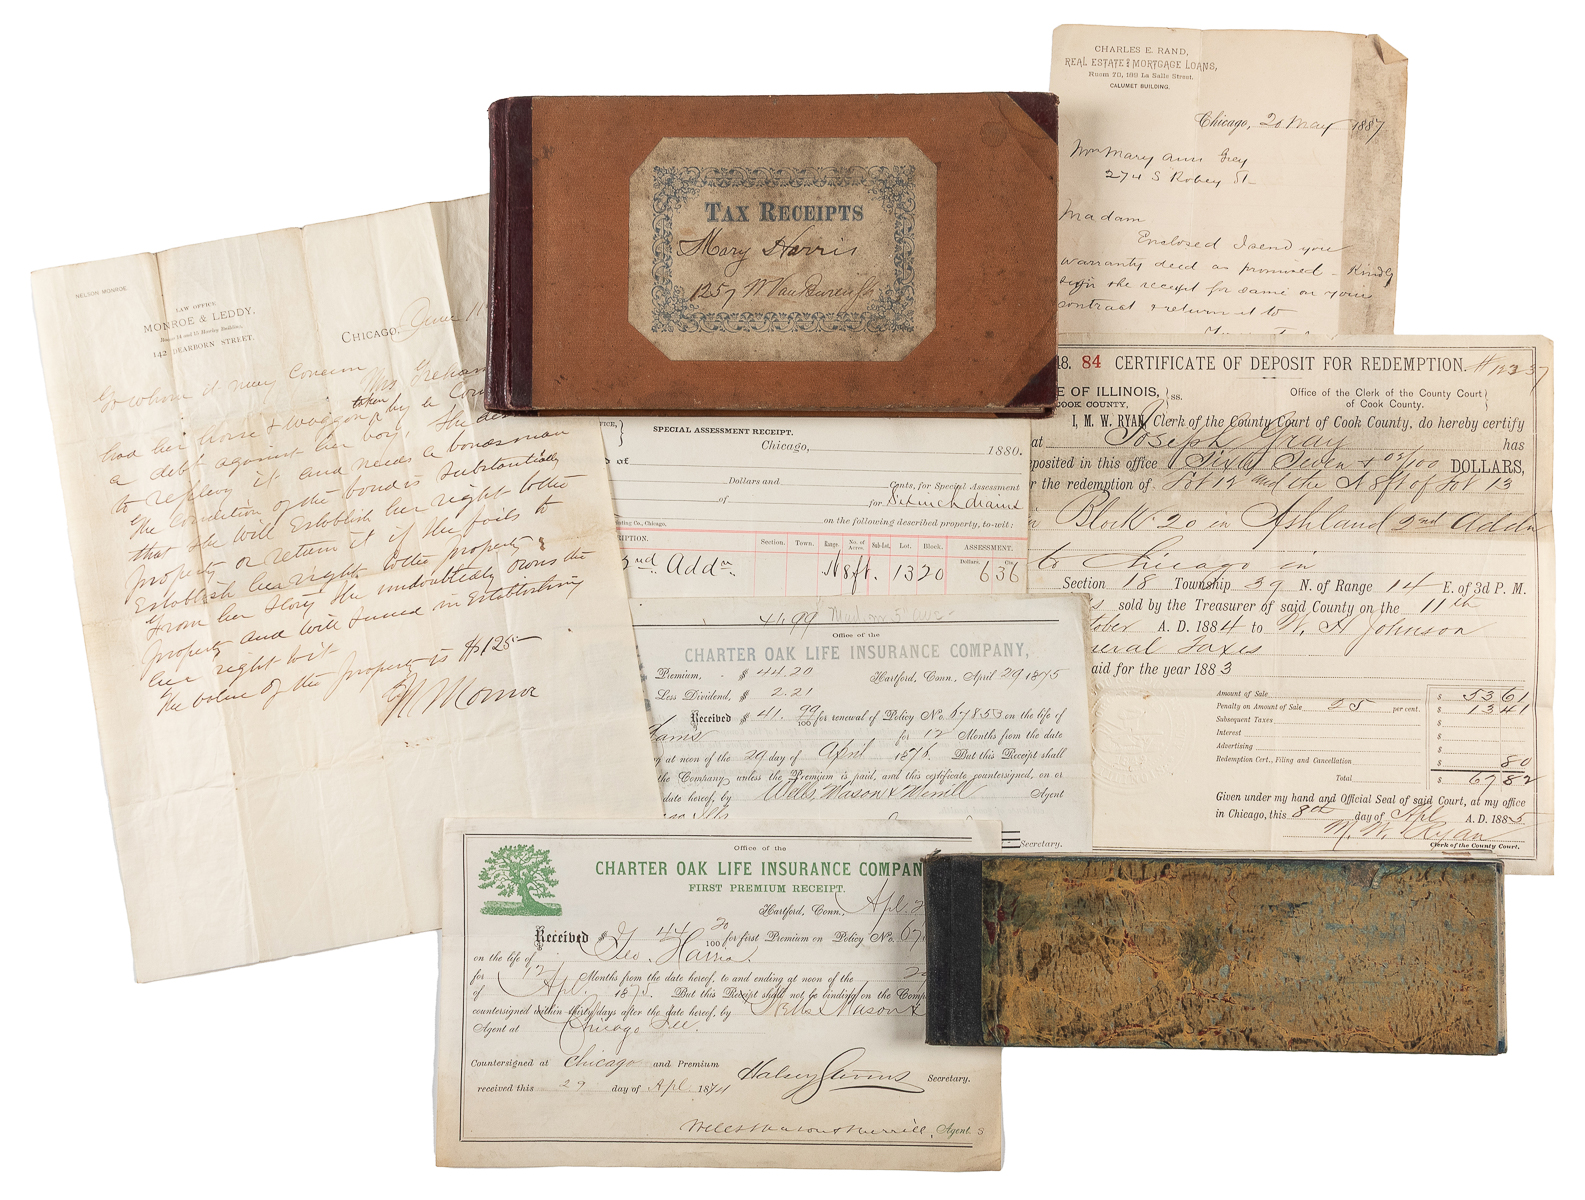 NELSON MONROE.
LAW OFFICE
MONROE & LEDDY,
142 DEARBORN STREET.
CHICAGO, June 11
To whom it may Concern
Mrs Graham
had her Horse & Waggon taken by a Con
a debt against her boy. She
to replevy it and needs a bondsman
The Condition of the bond is Substantially
that She will Establish her right to the
property or return it if She fails to
Establish her right to the property &
From her Story She undoubtedly owns the
property and will Succeed in Establishing
her right to it
The value of the property is $125—
N Monroe
TAX RECEIPTS
Mary Harris
1257 W Van Buren St
CHARLES E. RAND,
REAL ESTATE & MORTGAGE LOANS,
Room 70, 189 La Salle Street.
CALUMET BUILDING.
Chicago, 20 May 1887
Mrs Mary Ann Grey
274 S Robey St
Madam
Enclosed I send you
warranty deed as promised - Kindly
sign the receipt for same on your
contract & return it to
18. 84 CERTIFICATE OF DEPOSIT FOR REDEMPTION. # 12337
E OF ILLINOIS, } ss.
COOK COUNTY,
Office of the Clerk of the County Court }
of Cook County.
I, M. W. RYAN, Clerk of the County Court of Cook County, do hereby certify
at Joseph Gray has
eposited in this office Sixty Seven & 02/100 DOLLARS,
r the redemption of Lot 12 and the N 8 ft of Lot 13
in Block 20 in Ashland 2nd Addn
to Chicago in
Section 18 Township 39 N. of Range 14 E. of 3d P. M.
s sold by the Treasurer of said County on the 11th
tober A. D. 1884 to W. H Johnson
neral Taxes
aid for the year 1883
Amount of Sale $ 5361
Penalty on Amount of Sale 25 per cent. $ 1341
Subsequent Taxes $
Interest $
Advertising $
Redemption Cert., Filing and Cancellation $ 80
Total $ 6782
Given under my hand and Official Seal of said Court, at my office
in Chicago, this 8th day of Apl A. D. 1885
M. W. Ryan
Clerk of the County Court.
FICE, }
SPECIAL ASSESSMENT RECEIPT.
Chicago, 1880.
d of
Dollars and Cents, for Special Assessment
of for Six inch drains
ting Co., Chicago, on the following described property, to-wit:
RIPTION. Section. Town. Range. No. of Acres. Sub-Lot. Lot. Block. ASSESSMENT.
Dollars. Cts.
2nd Addn. N8ft. 13 20 636
41.99
Office of the
CHARTER OAK LIFE INSURANCE COMPANY,
Premium, $ 44.20 Hartford, Conn., April 29 1875
Less Dividend, $ 2.21
Received $ 41.99/100 for renewal of Policy No. 67853 on the life of
Harris for 12 Months from the date
g at noon of the 29 day of April 1876. But this Receipt shall
the Company unless the Premium is paid, and this certificate countersigned, on or
date hereof, by Wells Mason & Merrill Agent
Secretary.
Office of the
CHARTER OAK LIFE INSURANCE COMPAN
FIRST PREMIUM RECEIPT.
Hartford, Conn., Apl. 2
Received $ 44 20/100 for first Premium on Policy No. 67
on the life of Geo. Harris.
for 12 Months from the date hereof, to and ending at noon of the 29
of Apl. 1875. But this Receipt shall not be binding on the Comp
countersigned within thirty days after the date hereof, by Wells Mason &
Agent at Chicago Ill.
Countersigned at Chicago and Premium
received this 29 day of Apl 1874
Halsey Stevens Secretary.
Wells Mason & Merrill, Agent s